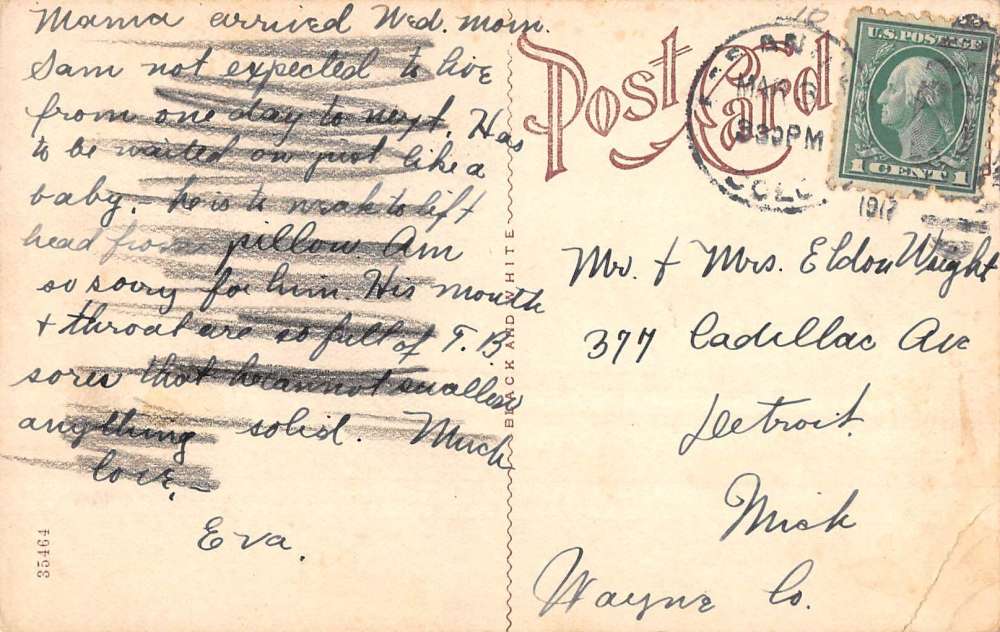 Mama arrived Wed. morn.
Sam not expected to live
from one day to next. Has
to be waited on just like a
baby, – he is to weak to lift
head from pillow. Am
so sorry for him. His mouth
+ throat are so full of T.B
sores that he cannot swallow
anything solid. Much
love, –
Eva.
35464
BLACK AND WHITE
Post Card
MAR
830PM
COLO
1917
U.S. POSTAGE
1 CENT 1
Mr. + Mrs. Eldon Wright
377 Cadillac Ave
Detroit.
Mich
Wayne Co.